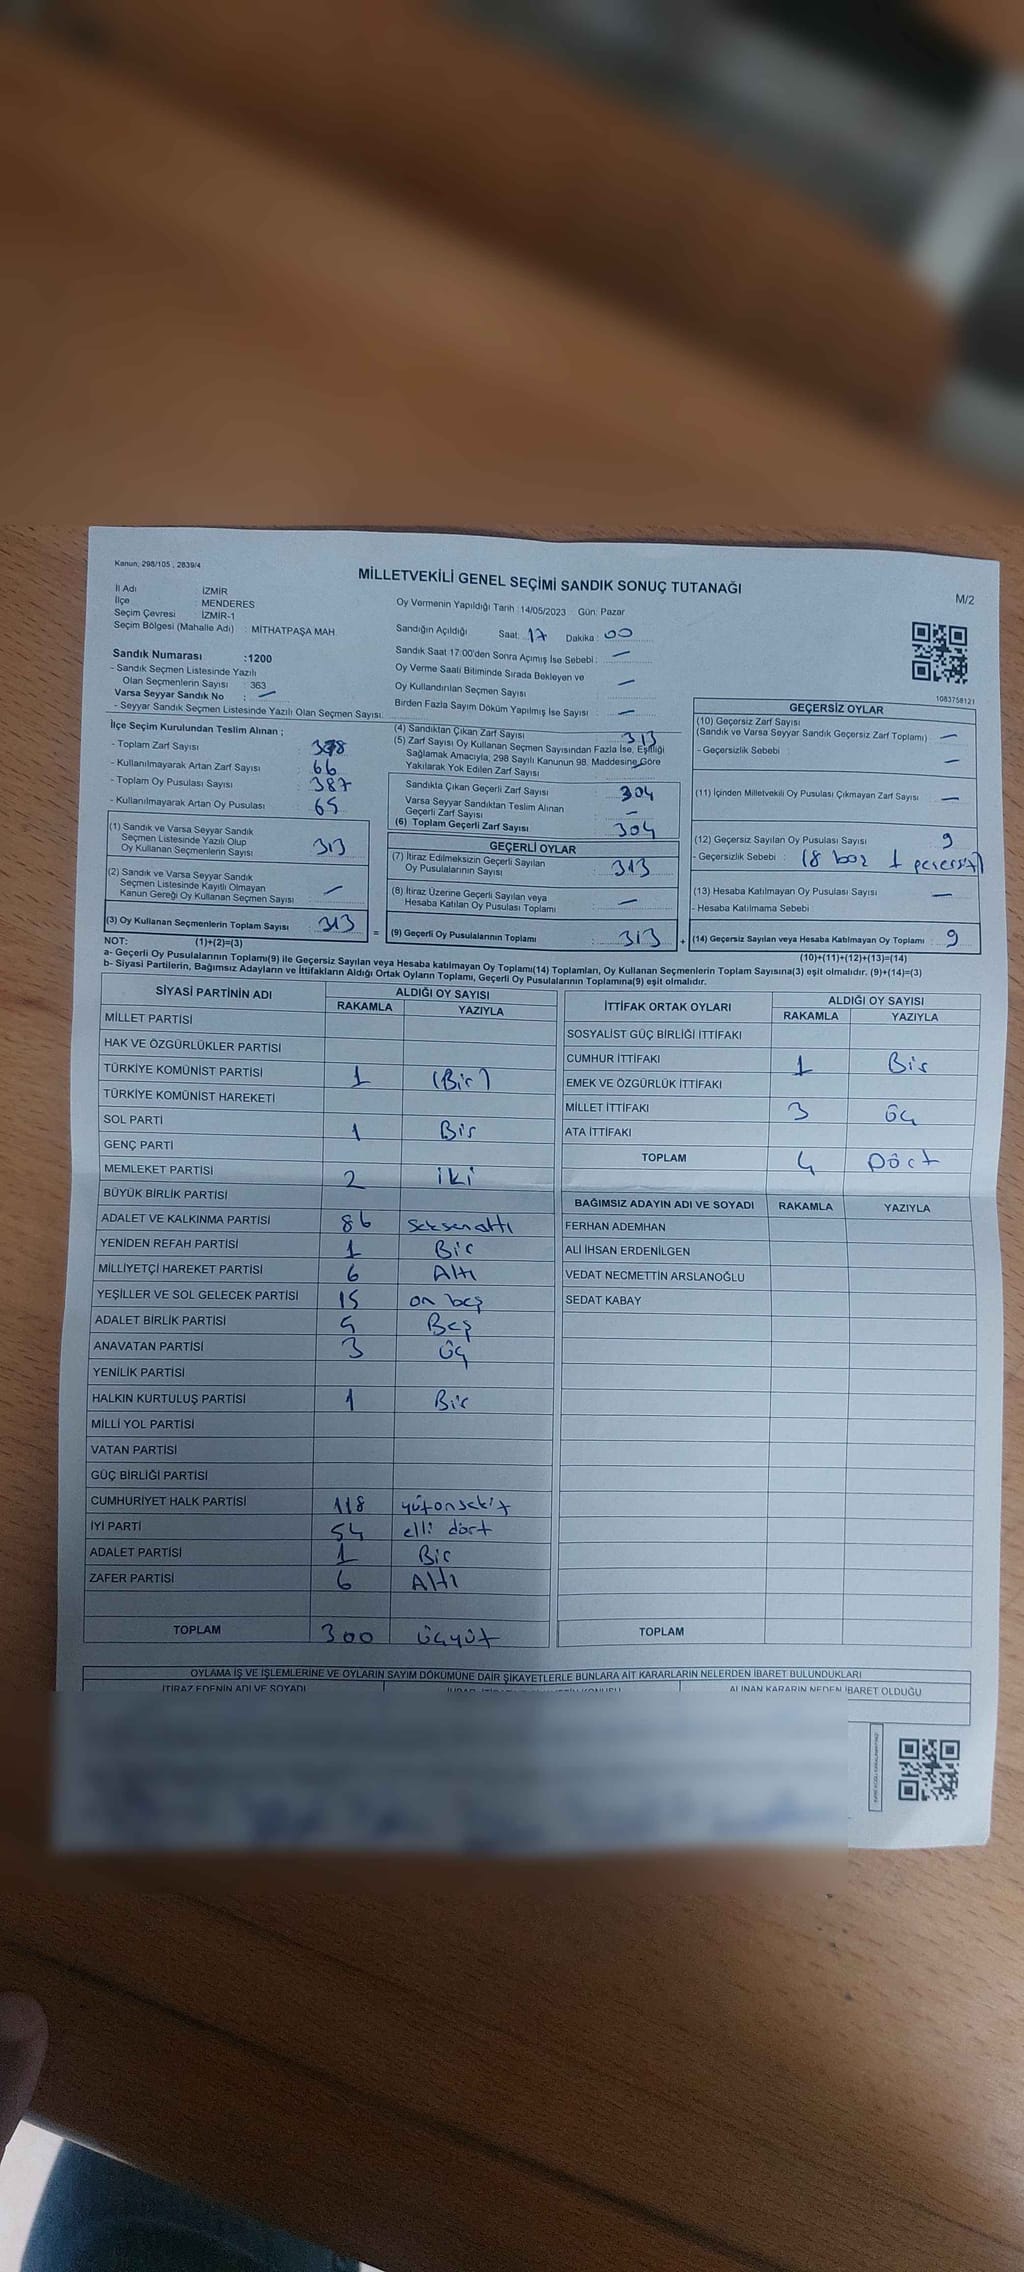 Kanun; 298/105 , 2839/4
MİLLETVEKİLİ GENEL SEÇİMİ SANDIK SONUÇ TUTANAĞI
M/2
İl Adı : İZMİR
İlçe : MENDERES
Seçim Çevresi : İZMİR-1
Seçim Bölgesi (Mahalle Adı) : MİTHATPAŞA MAH.
Sandık Numarası :1200
- Sandık Seçmen Listesinde Yazılı
Olan Seçmenlerin Sayısı : 363
Varsa Seyyar Sandık No : —
- Seyyar Sandık Seçmen Listesinde Yazılı Olan Seçmen Sayısı:
Oy Vermenin Yapıldığı Tarih :14/05/2023 Gün: Pazar
Sandığın Açıldığı Saat: 17 Dakika : 00
Sandık Saat 17:00'den Sonra Açımış İse Sebebi : —
Oy Verme Saati Bitiminde Sırada Bekleyen ve
Oy Kullandırılan Seçmen Sayısı : —
Birden Fazla Sayım Döküm Yapılmış İse Sayısı : —
1083758121
İlçe Seçim Kurulundan Teslim Alınan ;
- Toplam Zarf Sayısı : 378
- Kullanılmayarak Artan Zarf Sayısı : 66
- Toplam Oy Pusulası Sayısı : 387
- Kullanılmayarak Artan Oy Pusulası : 65
(1) Sandık ve Varsa Seyyar Sandık
Seçmen Listesinde Yazılı Olup
Oy Kullanan Seçmenlerin Sayısı : 313
(2) Sandık ve Varsa Seyyar Sandık
Seçmen Listesinde Kayıtlı Olmayan
Kanun Gereği Oy Kullanan Seçmen Sayısı : —
(3) Oy Kullanan Seçmenlerin Toplam Sayısı : 313 =
(4) Sandıktan Çıkan Zarf Sayısı : 313
(5) Zarf Sayısı Oy Kullanan Seçmen Sayısından Fazla İse, Eşitliği
Sağlamak Amacıyla, 298 Sayılı Kanunun 98. Maddesine Göre
Yakılarak Yok Edilen Zarf Sayısı : —
Sandıkta Çıkan Geçerli Zarf Sayısı : 304
Varsa Seyyar Sandıktan Teslim Alınan
Geçerli Zarf Sayısı : —
(6) Toplam Geçerli Zarf Sayısı : 304
GEÇERLİ OYLAR
(7) İtiraz Edilmeksizin Geçerli Sayılan
Oy Pusulalarının Sayısı : 313
(8) İtiraz Üzerine Geçerli Sayılan veya
Hesaba Katılan Oy Pusulası Toplamı : —
(9) Geçerli Oy Pusulalarının Toplamı : 313 +
GEÇERSİZ OYLAR
(10) Geçersiz Zarf Sayısı
(Sandık ve Varsa Seyyar Sandık Geçersiz Zarf Toplamı) : —
- Geçersizlik Sebebi : —
(11) İçinden Milletvekili Oy Pusulası Çıkmayan Zarf Sayısı : —
(12) Geçersiz Sayılan Oy Pusulası Sayısı : 9
- Geçersizlik Sebebi : (8 boz 1
(13) Hesaba Katılmayan Oy Pusulası Sayısı : —
- Hesaba Katılmama Sebebi :
(14) Geçersiz Sayılan veya Hesaba Katılmayan Oy Toplamı : 9
NOT: (1)+(2)=(3) (10)+(11)+(12)+(13)=(14)
a- Geçerli Oy Pusulalarının Toplamı(9) ile Geçersiz Sayılan veya Hesaba katılmayan Oy Toplamı(14) Toplamları, Oy Kullanan Seçmenlerin Toplam Sayısına(3) eşit olmalıdır. (9)+(14)=(3)
b- Siyasi Partilerin, Bağımsız Adayların ve İttifakların Aldığı Ortak Oyların Toplamı, Geçerli Oy Pusulalarının Toplamına(9) eşit olmalıdır.
SİYASİ PARTİNİN ADI ALDIĞI OY SAYISI
RAKAMLA YAZIYLA
MİLLET PARTİSİ
HAK VE ÖZGÜRLÜKLER PARTİSİ
TÜRKİYE KOMÜNİST PARTİSİ 1 (Bir)
TÜRKİYE KOMÜNİST HAREKETİ
SOL PARTİ 1 Bir
GENÇ PARTİ
MEMLEKET PARTİSİ 2 iki
BÜYÜK BİRLİK PARTİSİ
ADALET VE KALKINMA PARTİSİ 86 seksenaltı
YENİDEN REFAH PARTİSİ 1 Bir
MİLLİYETÇİ HAREKET PARTİSİ 6 Altı
YEŞİLLER VE SOL GELECEK PARTİSİ 15 on beş
ADALET BİRLİK PARTİSİ 5 Beş
ANAVATAN PARTİSİ 3 üç
YENİLİK PARTİSİ
HALKIN KURTULUŞ PARTİSİ 1 Bir
MİLLİ YOL PARTİSİ
VATAN PARTİSİ
GÜÇ BİRLİĞİ PARTİSİ
CUMHURİYET HALK PARTİSİ 118 yüzonsekiz
İYİ PARTİ 54 elli dört
ADALET PARTİSİ 1 Bir
ZAFER PARTİSİ 6 Altı
TOPLAM 300 üçyüz
İTTİFAK ORTAK OYLARI ALDIĞI OY SAYISI
RAKAMLA YAZIYLA
SOSYALİST GÜÇ BİRLİĞİ İTTİFAKI
CUMHUR İTTİFAKI 1 Bir
EMEK VE ÖZGÜRLÜK İTTİFAKI
MİLLET İTTİFAKI 3 üç
ATA İTTİFAKI
TOPLAM 4 Dört
BAĞIMSIZ ADAYIN ADI VE SOYADI RAKAMLA YAZIYLA
FERHAN ADEMHAN
ALİ İHSAN ERDENİLGEN
VEDAT NECMETTİN ARSLANOĞLU
SEDAT KABAY
TOPLAM
OYLAMA İŞ VE İŞLEMLERİNE VE OYLARIN SAYIM DÖKÜMÜNE DAİR ŞİKAYETLERLE BUNLARA AİT KARARLARIN NELERDEN İBARET BULUNDUKLARI
İTİRAZ EDENİN ADI VE SOYADI
ALINAN KARARIN NEDEN İBARET OLDUĞU